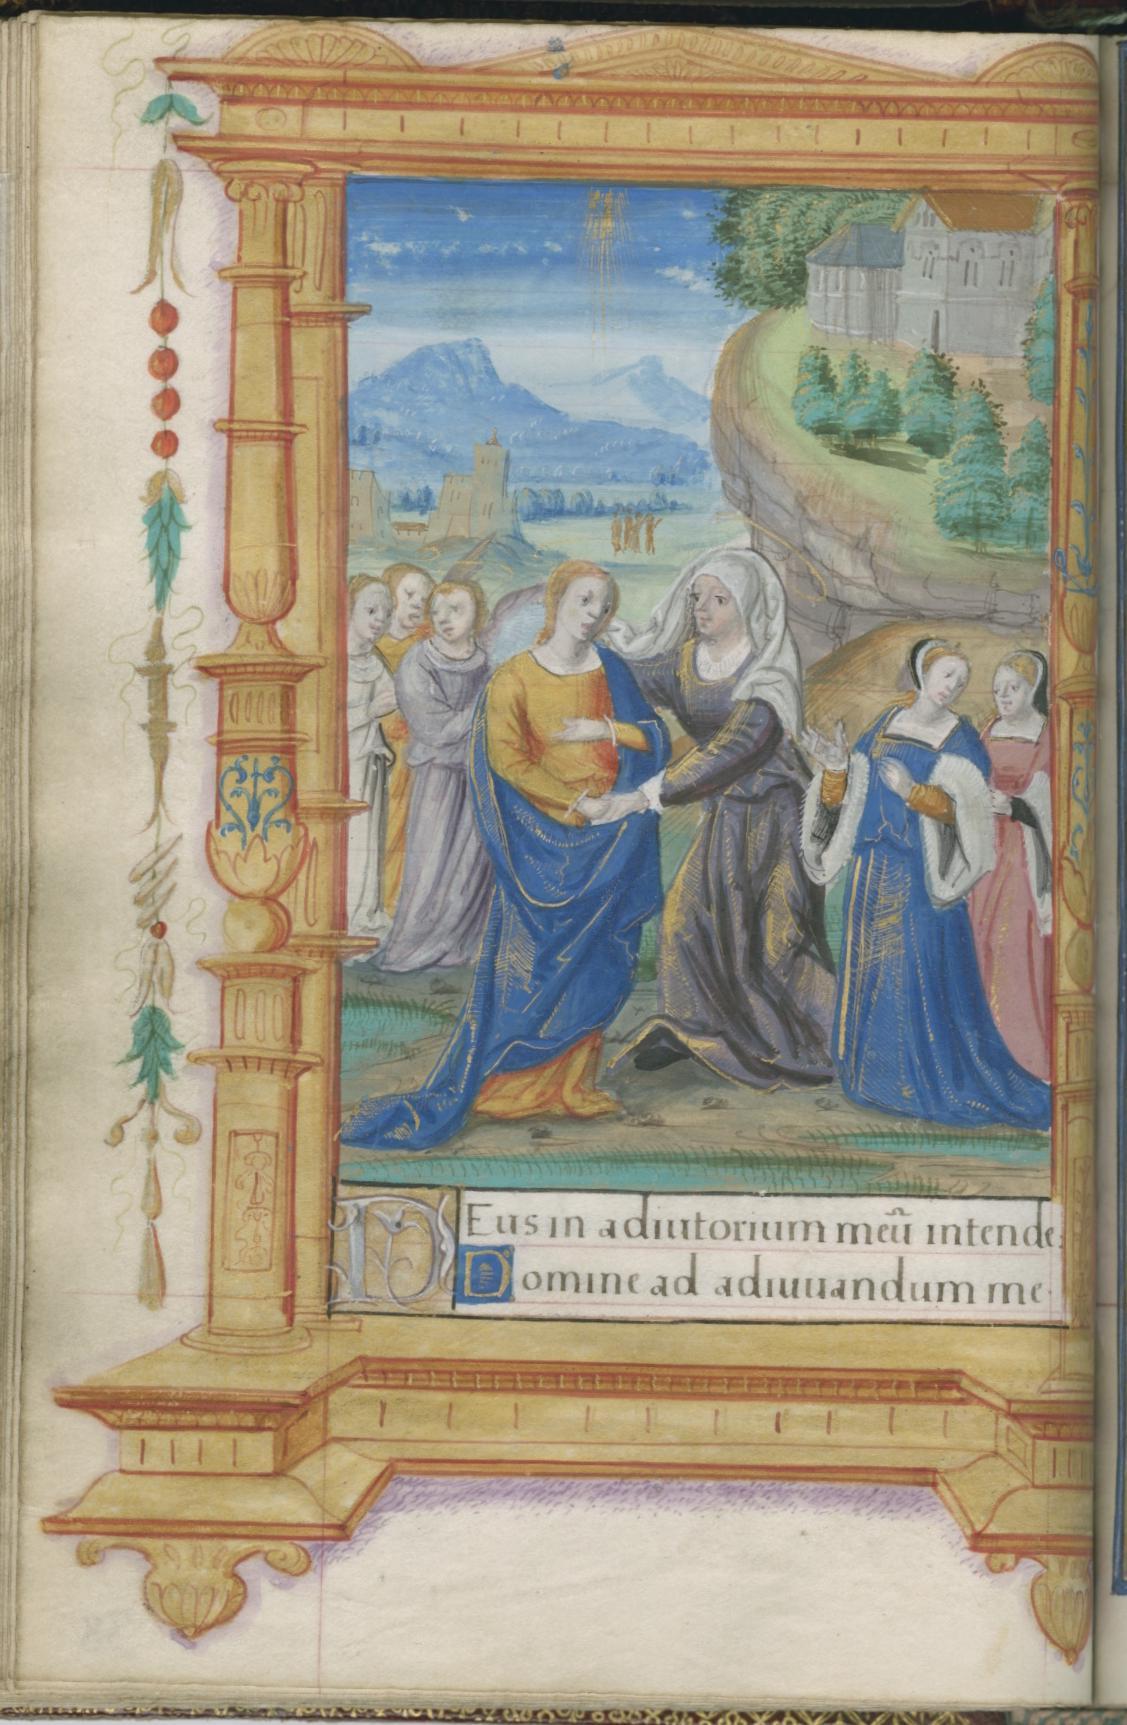 DEus in adiutorium meū intende:
Domine ad adiuuandum me·